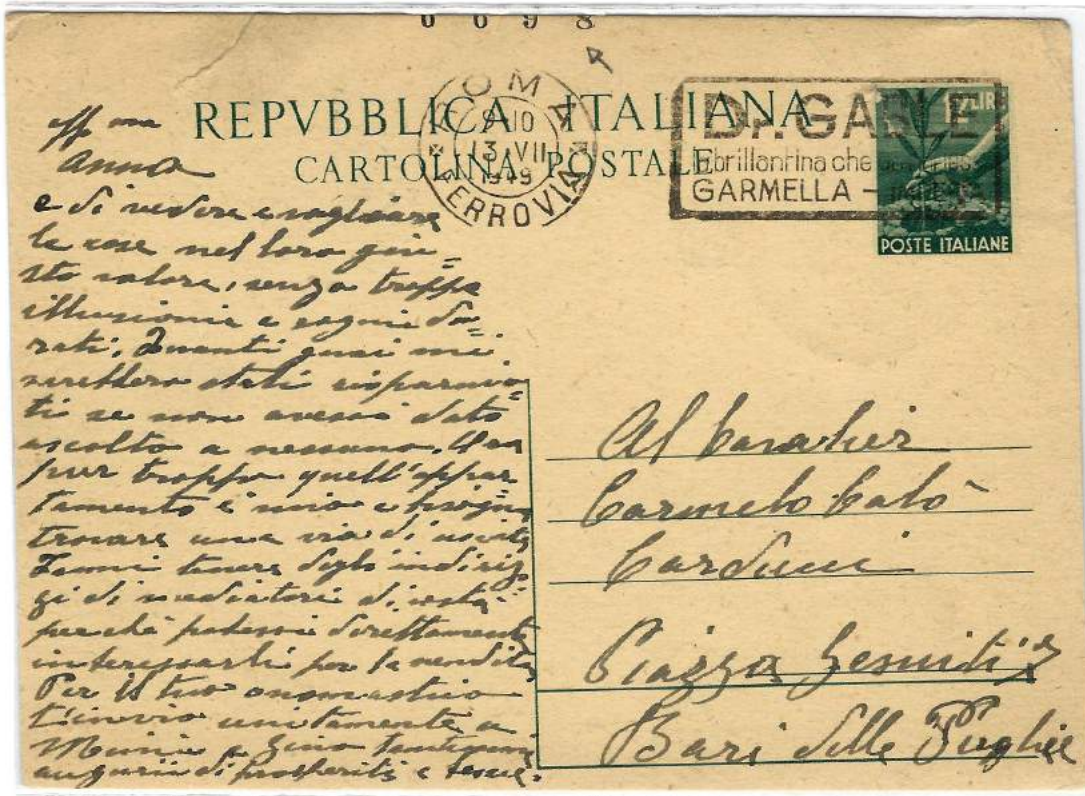 6698
REPVBBLICA ITALIANA
CARTOLINA POSTALE
ROMA
9-10
13.VII
1949
FERROVIA
Dr. GABLE
la brillantina che
GARMELLA -
12 LIRE
POSTE ITALIANE
Aff ma
Anna
e di vedere e vagliare
le cose nel loro giu=
sto valore, senza troppe
illusioni e sogni do=
rati. Quanti guai mi
sarebbero stati risparmia=
ti se non avessi dato
ascolto a nessuno. Ma
pur troppo quell'appar
tamento è mio e bisogna
trovare una via di uscita
Fammi tenere degli indiriz
zi di mediatori di costà
perchè potessi direttamente
interessarli per la vendita
Per il tuo onomastico
t'invio unitamente a
Mimì e Gino tantissimi
auguri di prosperità e
Al Cavalier
Carmelo Calò
Carducci
Piazza Gesuiti 2
Bari delle Puglie